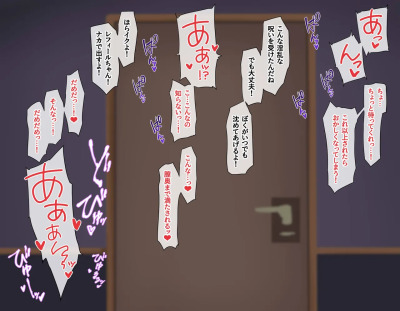 あっ♥
んっ♥
ちょ…
ちょっと待ってくれっ…!
これ以上されたら
おかしくなってしまう!
こんな淫乱な
呪いを受けたんだね
でも大丈夫!
ぼくがいつでも
沈めてあげるよ!
あぁっ!?
こ…こんなの
知らないっ…!
こんな…っ♥
膣奥まで満たされるっ♥
ほらイクよ!
レフィールちゃん!
ナカで出すよ!
だめだっ…!♥
そんなっ…!
だめだめっ…!
あぁぁぁんっ♥